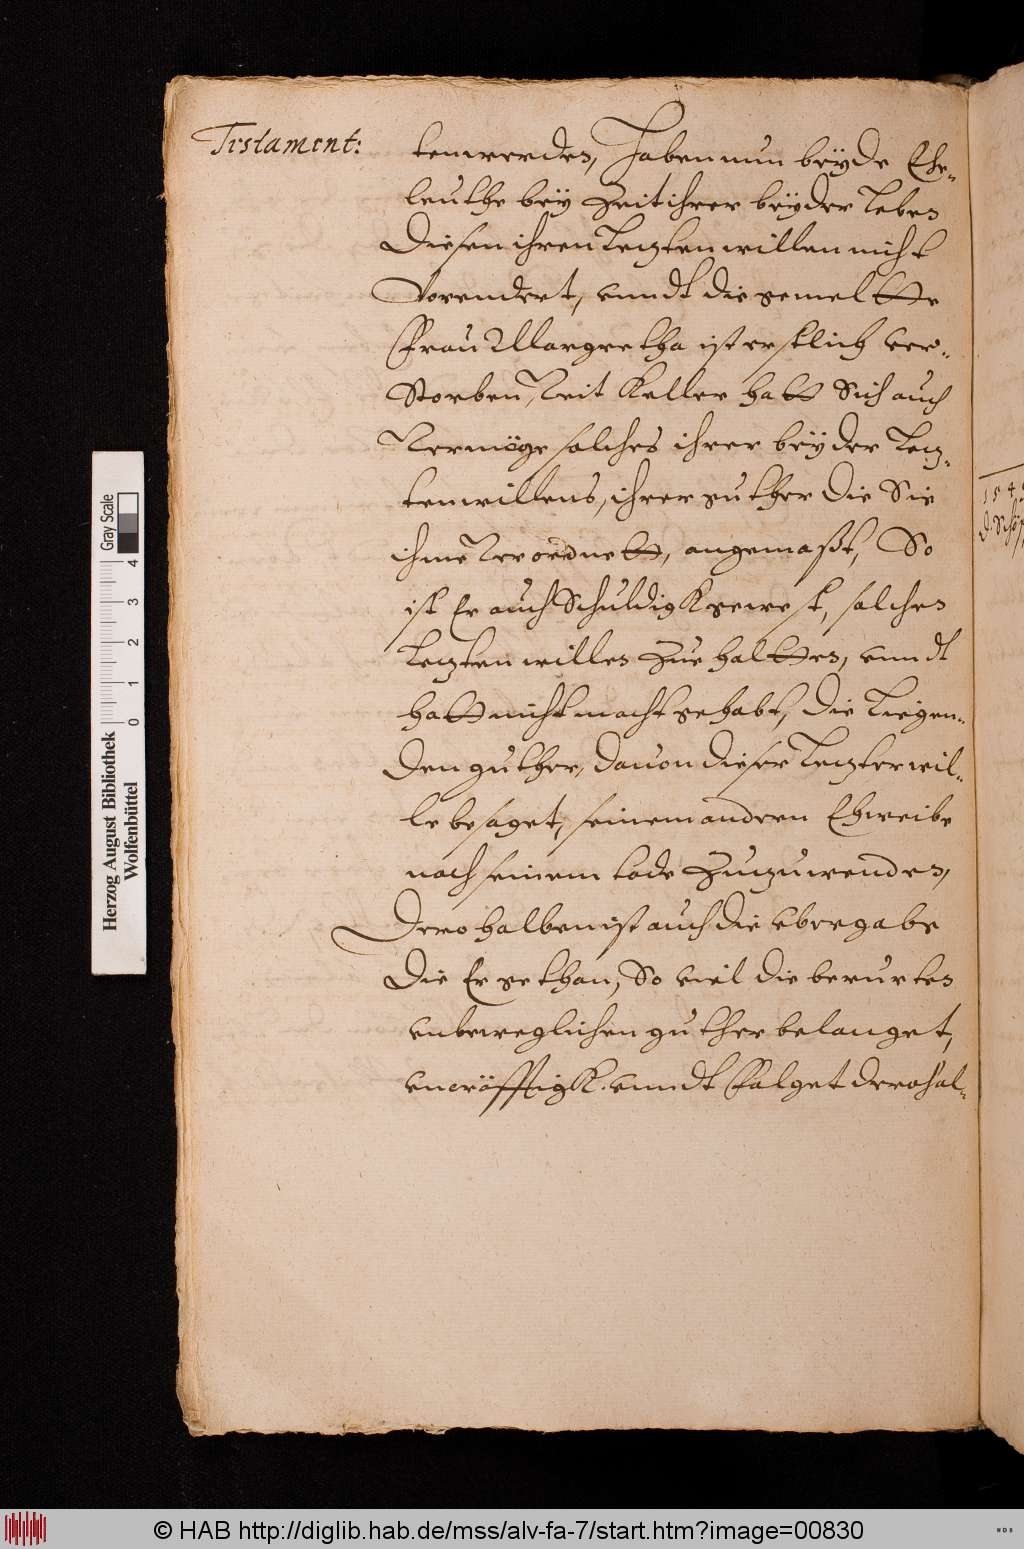 Testament:
ten werden, Haben nun beyde Ehe-
leuthe bey Zeit ihrer beyder Leben
Diesen ihren Letzten willen nicht
Vorendert, vnndt die gemeltte
Frau Margretha ist erstlich ver-
Storben, Veit Keller hatt Sich auch
Vermöge solches ihrer beyder Letz-
ten willens, ihrer guther die Sie
ihme Verordnett, angemast, So
ist Er auch Schuldigk gewest, solchen
Letzten willen Zue haltten, vnndt
hatt nicht macht gehabt, die Liegen-
den guther, dauon dieser Letzter wil-
le besaget, seinem andern Eheweibe
nach seinem tode Zuzuwenden,
Dero halben ist auch die vbergabe
die Er gethan, So viel die berurten
vnbeweglichen guther belanget,
vncräfftigk. vnndt Folget derohal-
154
Herzog August Bibliothek
Wolfenbüttel
0 1 2 3 4
Gray Scale
© HAB http://diglib.hab.de/mss/alv-fa-7/start.htm?image=00830